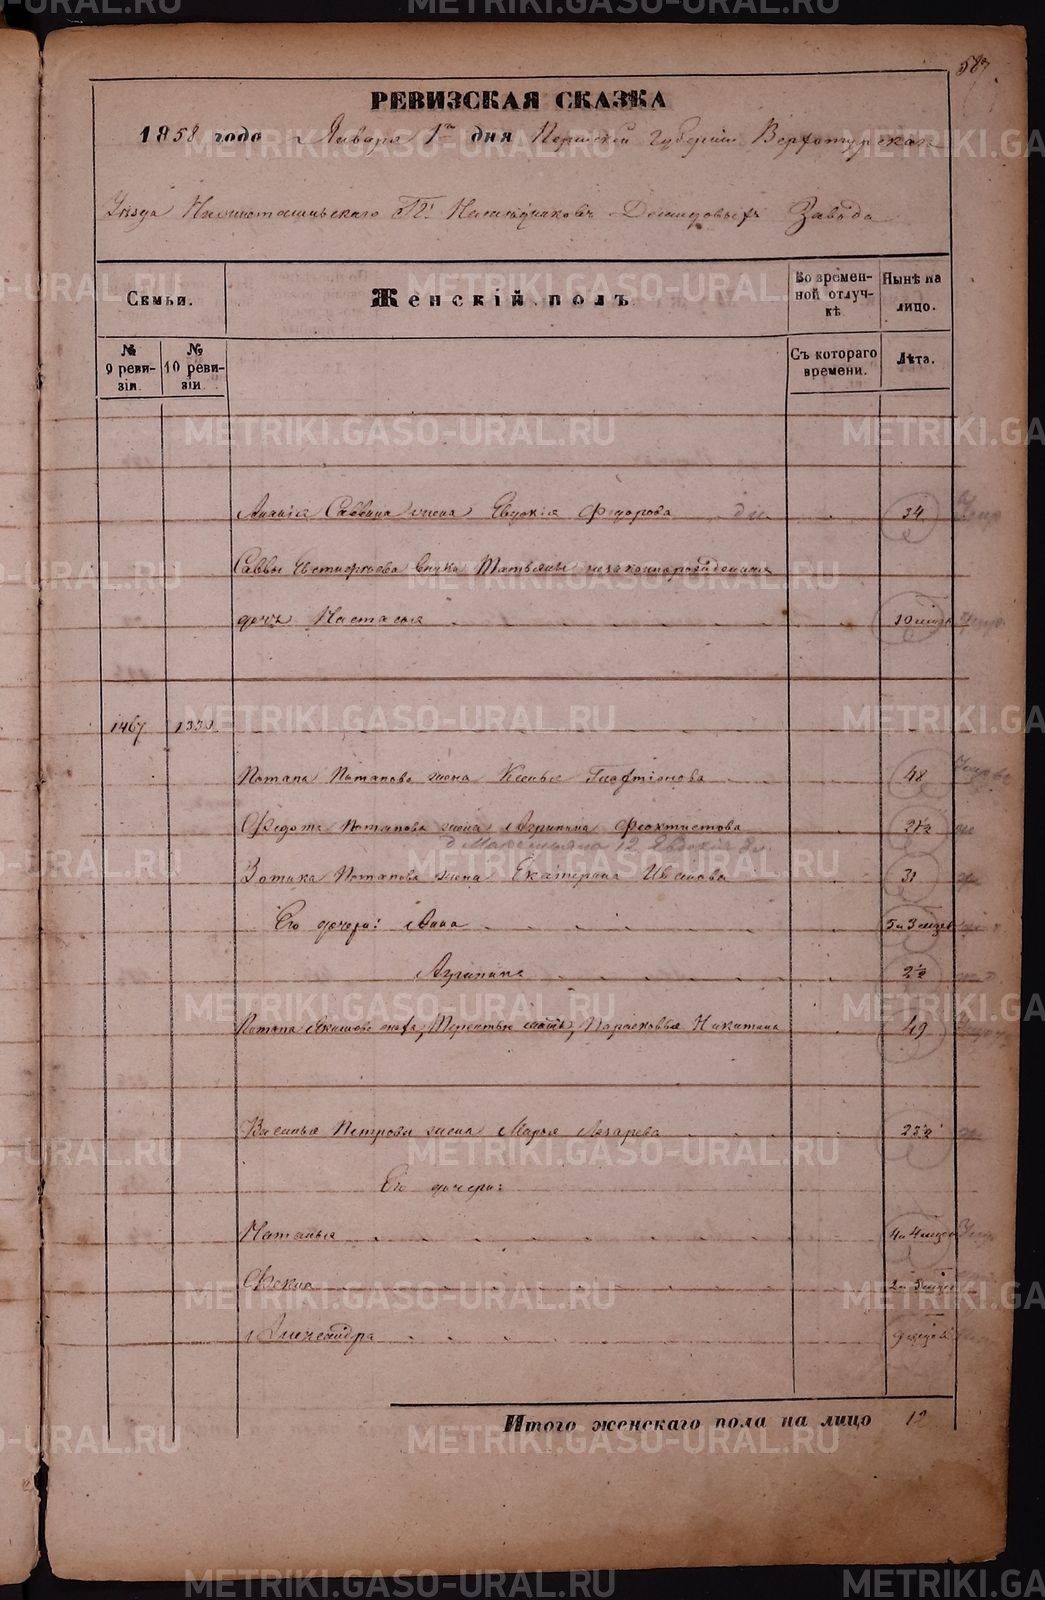 587
РЕВИЗСКАЯ СКАЗКА
1858 года Января 1го дня Пермской Губернии Верхотурскаго
Уѣзда Нижнотагильскаго Гг. Наслѣдниковъ Демидовыхъ Завода
Семьи.
Женскій полъ
Во времен-
ной отлуч-
кѣ
Нынѣ на
лицо.
№
9 реви-
зіи.
№
10 реви-
зіи.
Съ котораго
времени.
Лѣта.
Ананія Саввина жена Евдокія Федорова 34
Саввы внука Татьяны незаконнорожденная
дочь Настасья 10 мѣсяц
1467 1330
Потапа Потапова жена Ксенья 48
Федота Потапова жена Агрипина Феоктистова 27½
12 Евдокія
Зотика Потапова жена Екатерина Иванова 31
Его дочери: Анна 5 и 3 мѣсяц
Агрипина 2½
Потапа снова, Терентья мать, Парасковья Никитина 49
Василья Петрова жена Марья Лазарева 23½
Его дочери:
Наталья 4 и 4 мѣсяц
Фекла 2 и 3 мѣсяц
Александра 9 мѣсяц
Итого женскаго пола на лицо 12
METRIKI.GASO-URAL.RU